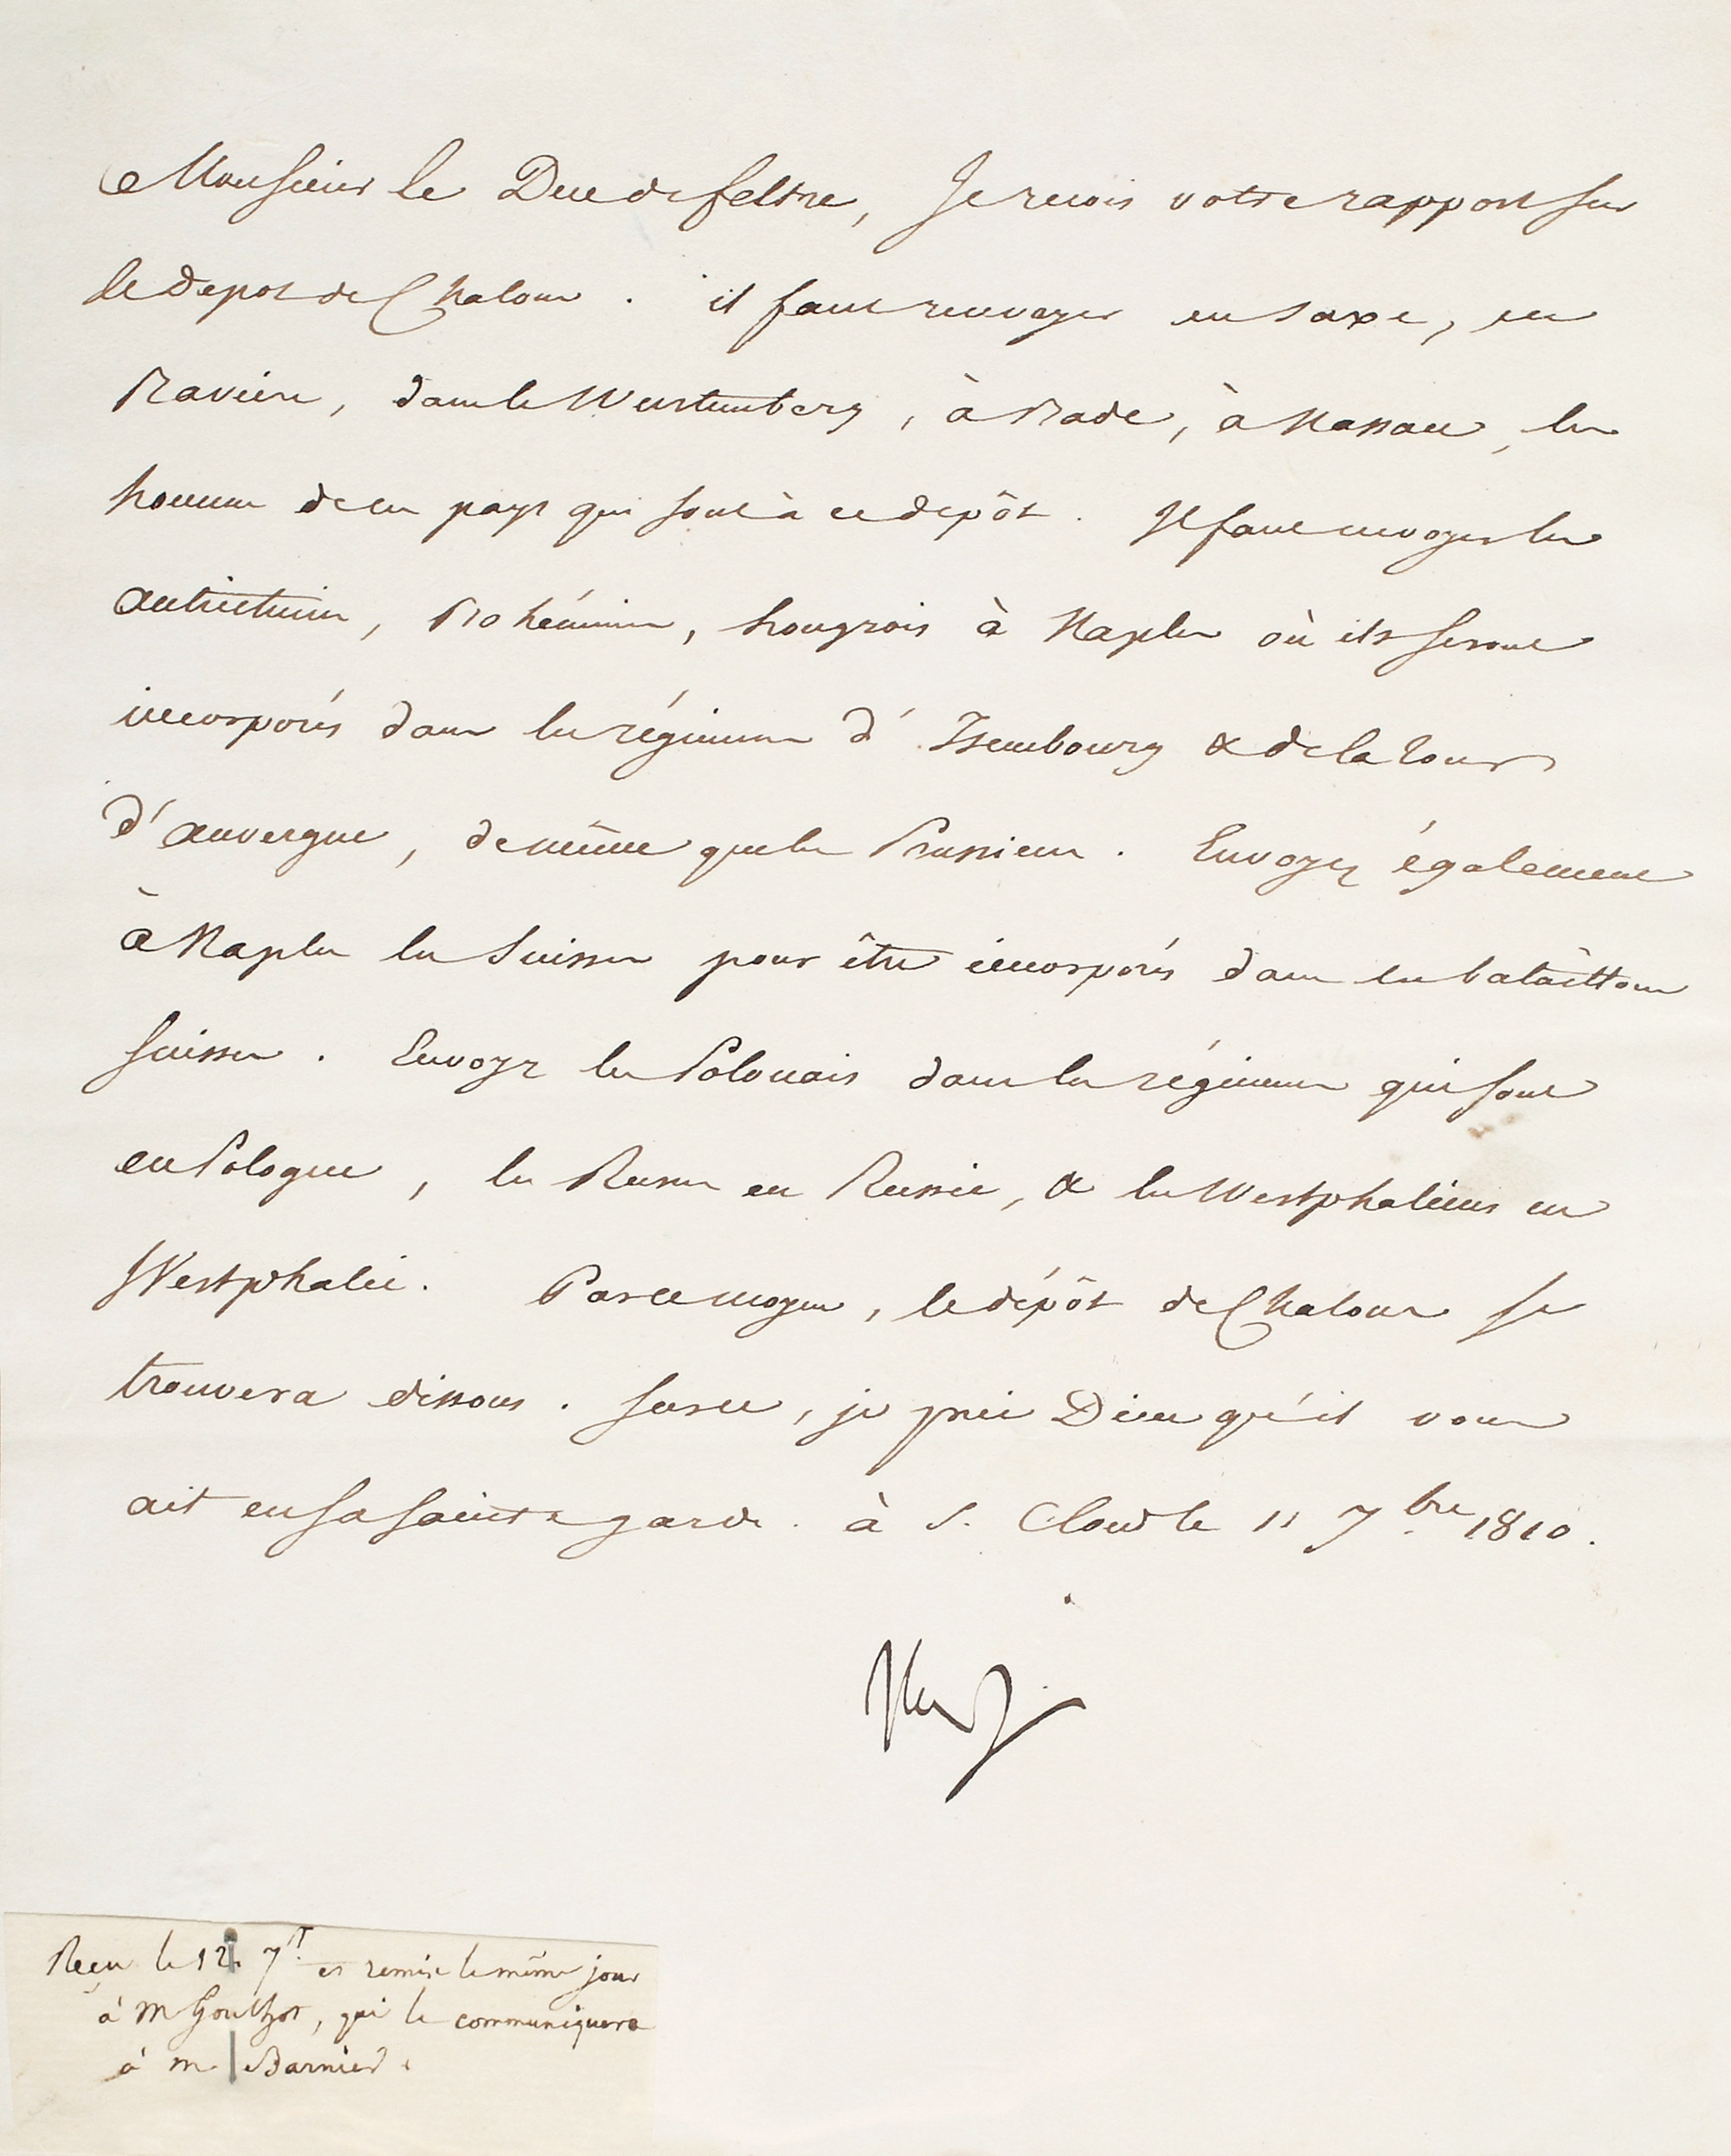 Monsieur le Duc de feltre, Je reçois votre rapport sur
le depot de Chalons. il faut renvoyer en saxe, en
Bavière, dans le Wurtemberg, à Bade, à Nassau, les
hommes de ces pays qui sont à ce depôt. Il faut envoyer les
autrichiens, Bohémiens, hongrois à Naples où ils seront
incorporés dans les régimens d'Isembourg & de la Tour
d'auvergne, de même que les Prussiens. Envoyez également
à Naples les Suisses pour être incorporés dans les bataillons
suisses. Envoyez les Polonais dans les régimens qui sont
en Pologne, les Russes en Russie, & les Westphaliens en
Westphalie. Par ce moyen, le dépôt de Chalons se
trouvera dissous. Sur ce, je prie Dieu qu'il vous
ait en sa sainte garde. à S. Cloud le 11 7bre 1810.
Nap
Reçu le 12. 7r et remis le même jour
à M, qui le communiquera
à M Barnier.